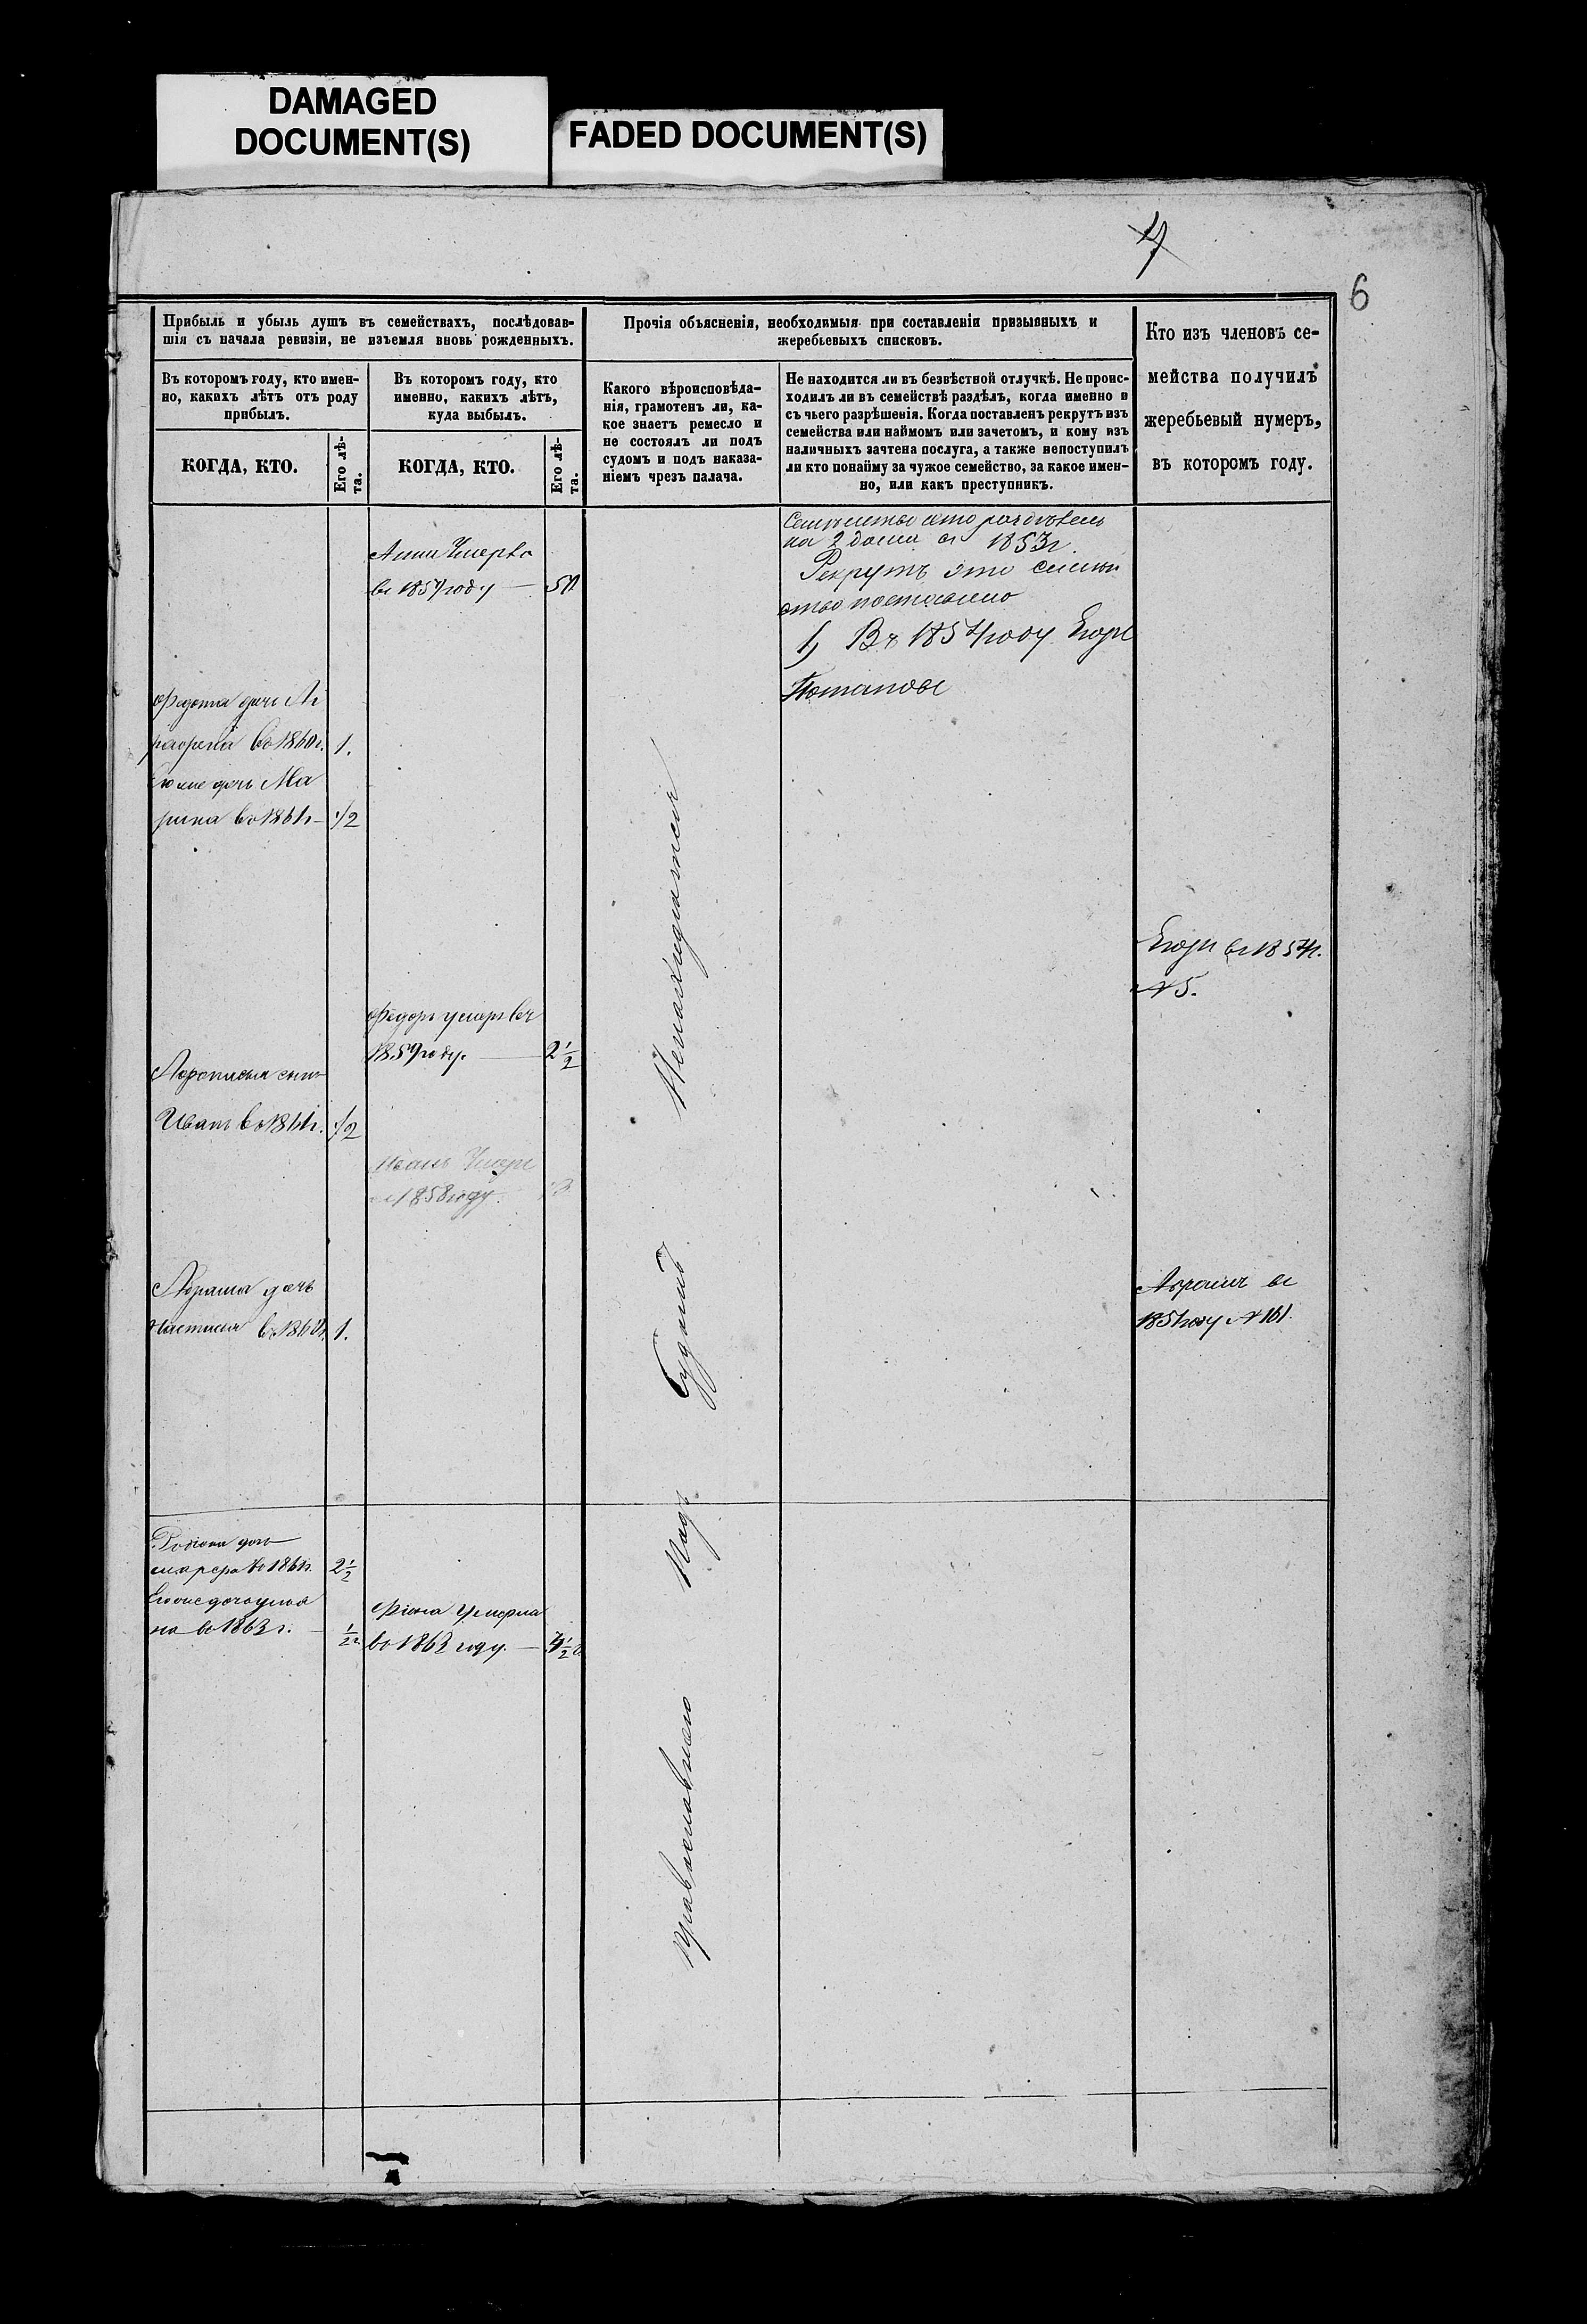 DAMAGED
DOCUMENT(S)
FADED DOCUMENT(S)
6
Прибыль и убыль душъ въ семействахъ, послѣдовав-
шія съ начала ревизіи, не изъемля вновь рожденныхъ.
Прочія объясненія, необходимыя при составленіи призывныхъ и
жеребьевыхъ списковъ.
Кто изъ членовъ се-
мейства получилъ
жеребьевый нумеръ,
въ которомъ году.
Въ которомъ году, кто имен-
но, какихъ лѣтъ отъ роду
прибылъ.
Въ которомъ году, кто
именно, какихъ лѣтъ,
куда выбылъ.
Какого вѣроисповѣда-
нія, грамотенъ ли, ка-
кое знаетъ ремесло и
не состоялъ ли подъ
судомъ и подъ наказа-
ніемъ чрезъ палача.
Не находится ли въ безвѣстной отлучкѣ. Не проис-
ходилъ ли въ семействѣ раздѣлъ, когда именно и
съ чьего разрѣшенія. Когда поставленъ рекрутъ изъ
семейства или наймомъ или зачетомъ, и кому изъ
наличныхъ зачтена послуга, а также непоступилъ
ли кто понайму за чужое семейство, за какое имен-
но, или какъ преступникъ.
КОГДА, КТО.
Его лѣ-
та.
КОГДА, КТО.
Его лѣ-
та.
Анна Умерла
въ 1857 году
на 2 дома въ 1853 г.
Рекрутъ это семей
ство поставило
1) Въ 1854 году Егоръ
Потаповъ
Федота дочь
въ 1860 г. 1.
дочь Ма
рина въ 1861 г. 1/2
Егоръ въ 1854 г.
№ 5.
Федоръ умеръ въ
1859 году. 2 1/2
сынъ
Иванъ въ 1861 г. 1/2
Иванъ Умеръ
1858 году.
Абрама дочь
Настасья въ 1860 г. 1.
Абрамъ въ
185 году № 161.
дочь
въ 1861 г. 2 1/2
на въ 1863 г. 1/2
умерла
въ 1862 году.
православнаго
Подъ
Судомъ
Ненаходится